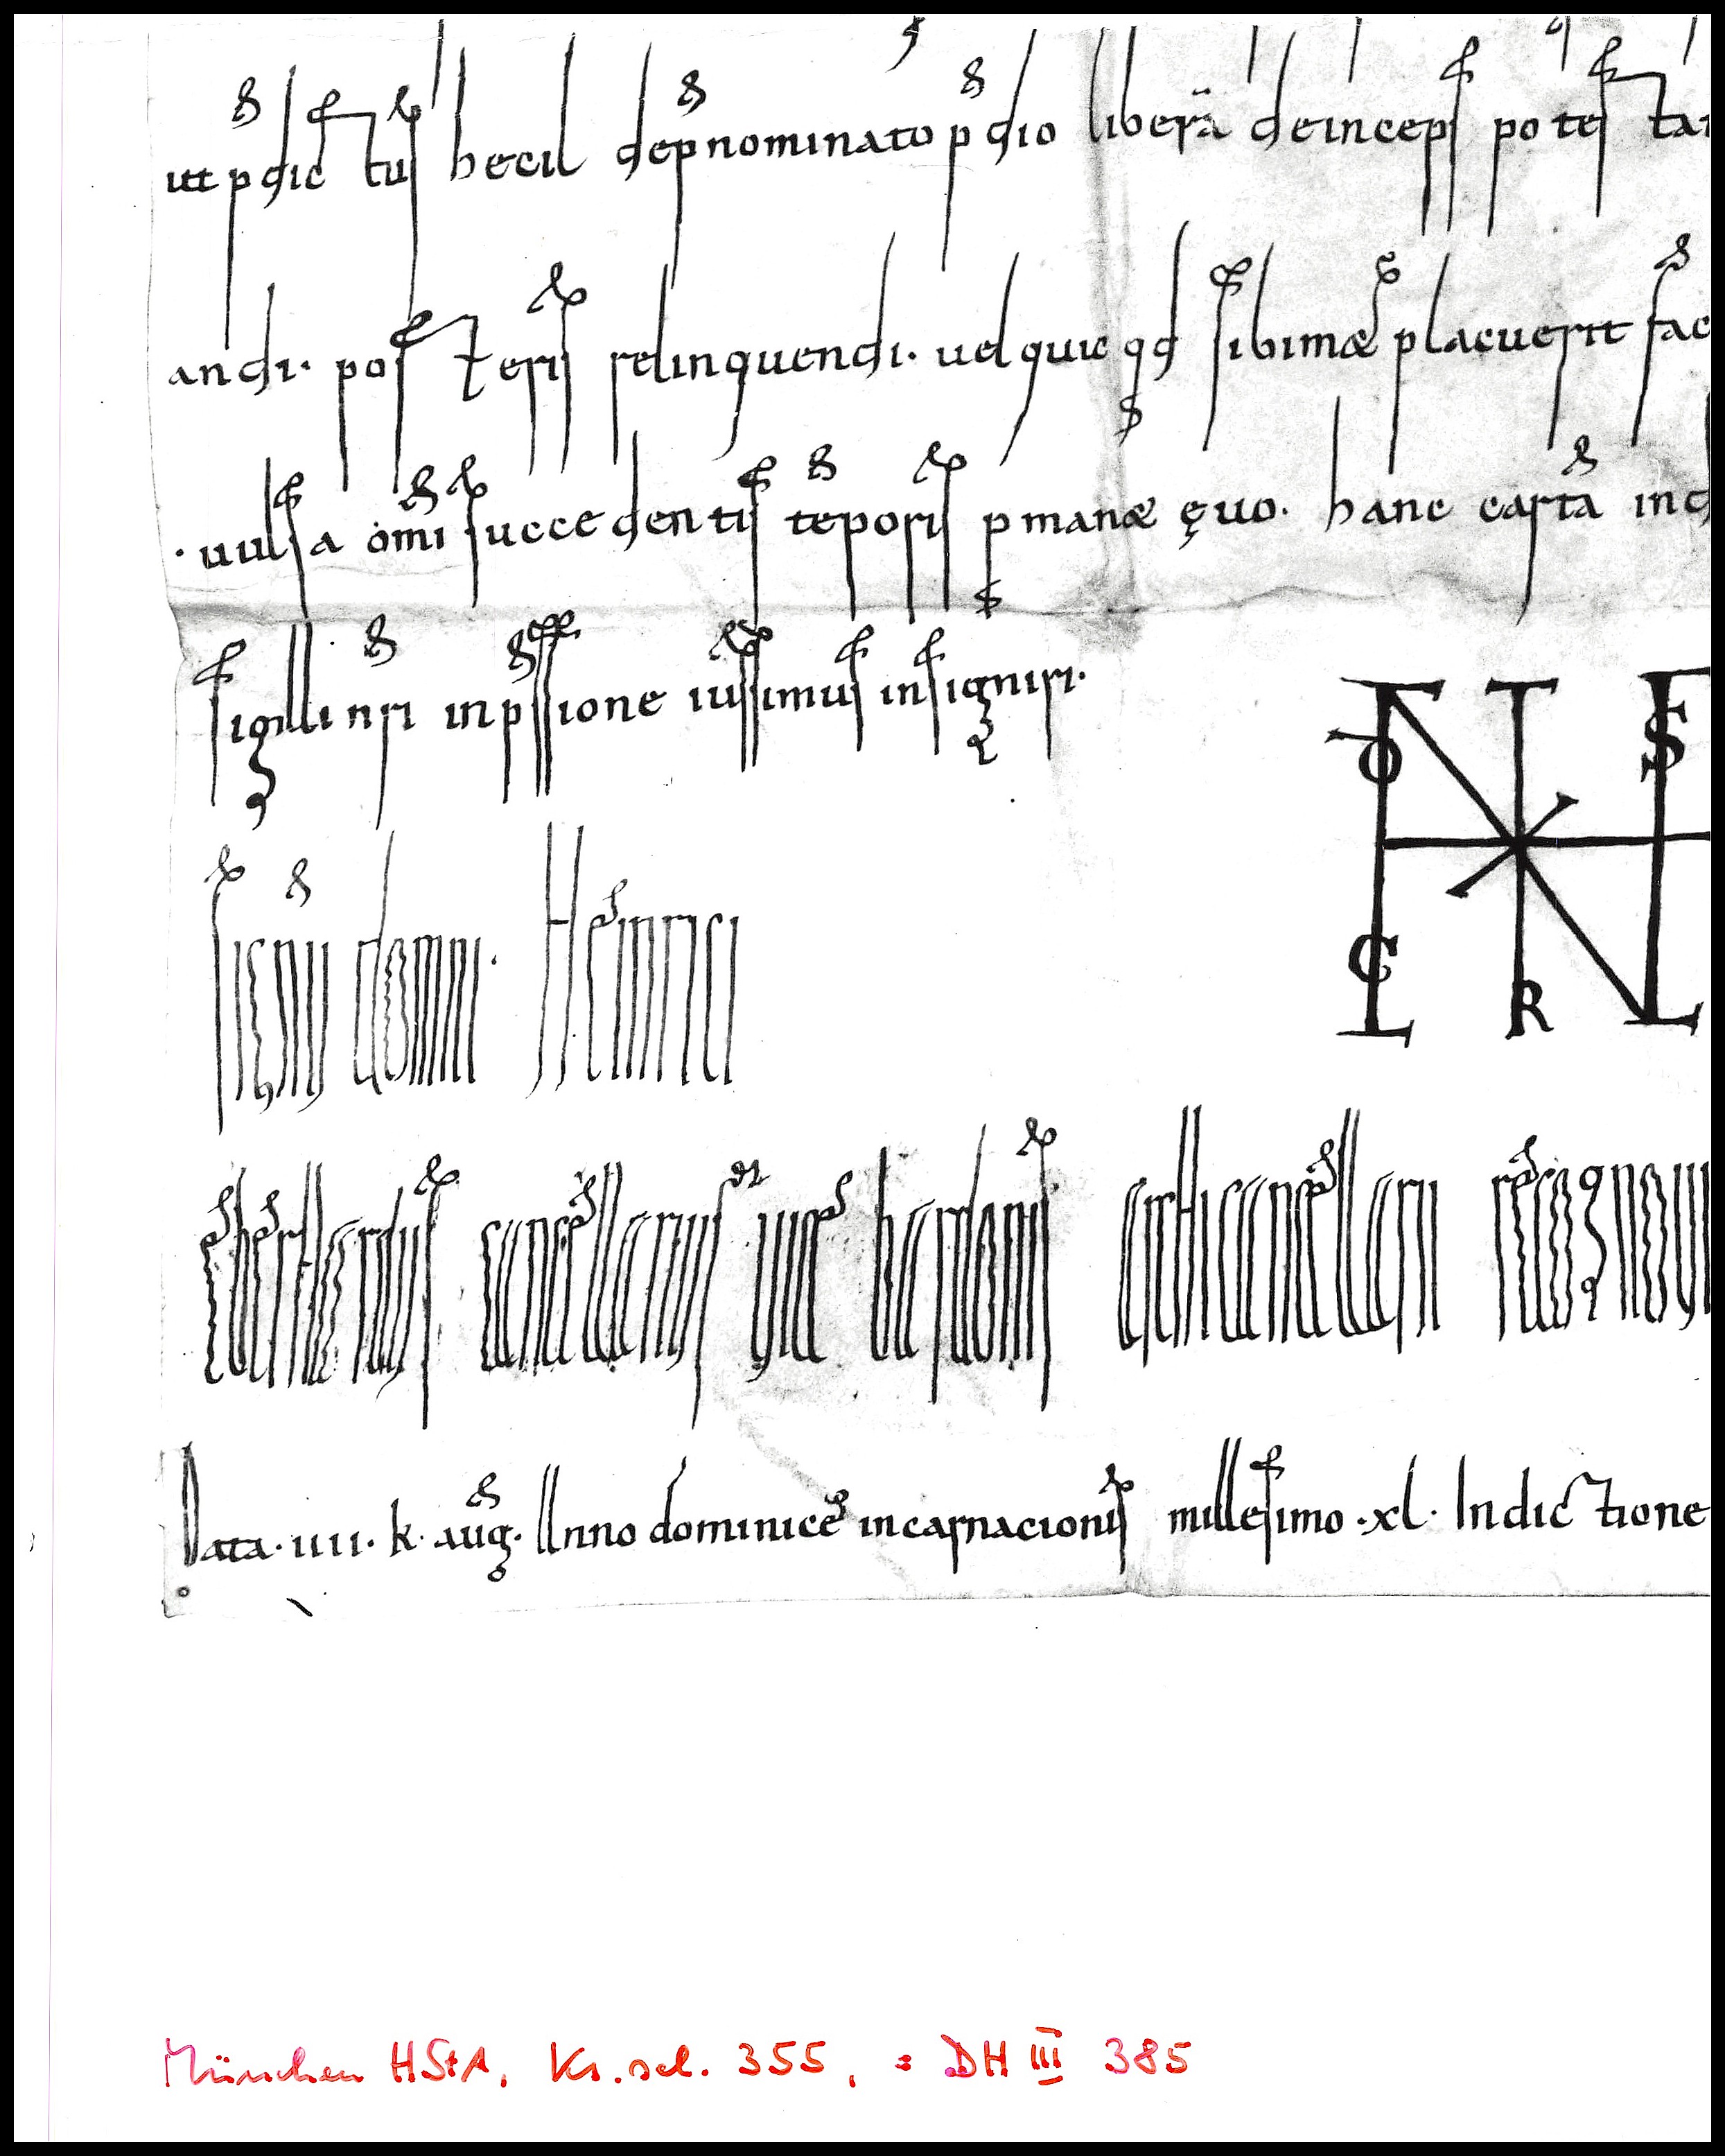 ut p dic tus hecil de p nominato p dio liberā deinceps potes tat
andi. pos teris relinquendi. uel quic qd sibimæ placuerit fac
. uulsa om̄i succedentis tēporis p manæ ęuo. hanc cartā ind
sigilli nr̄i inp̄ssione iussimus insigniri.
Signū domni. Heinrici
O S
C R
eberhardus cancellarius uice bardonis archicancellarii recognoui
Data. IIII. k. aug. Anno dominice incarnacionis millesimo. xl. Indictione
München HStA, Ks. sel. 355, = DH III 385